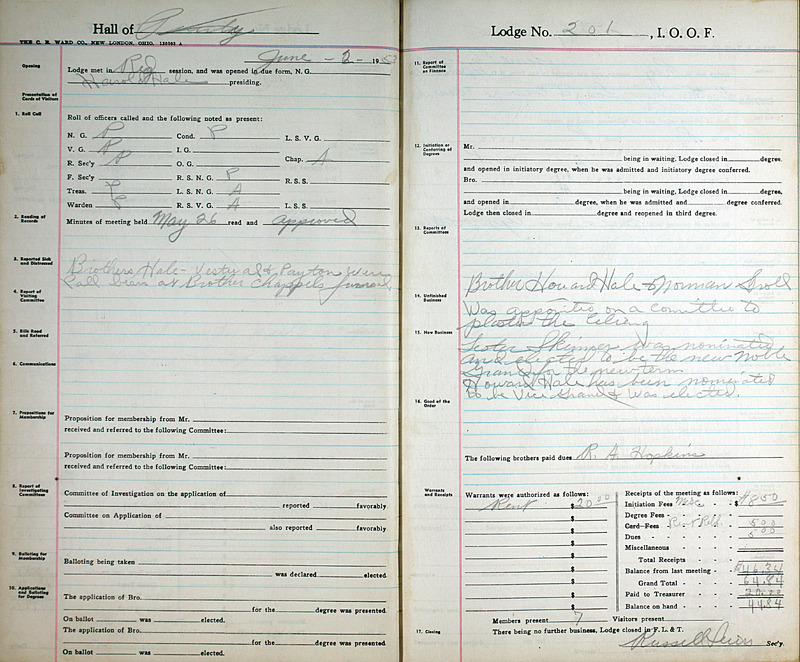 Hall of
THE C. E. WARD CO., NEW LONDON, OHIO. 135063 A
June - 2 - 1953
Opening
Lodge met in Reg session, and was opened in due form, N. G.
Harold Hale presiding.
Presentation of Cards of Visitors
1. Roll Call
Roll of officers called and the following noted as present:
N. G. P Cond. P L. S. V. G.
V. G. P I. G. Chap. A
R. Sec'y P O. G.
F. Sec'y R. S. N. G. P R. S. S.
Treas. P L. S. N. G. A
Warden P R. S. V. G. A L. S. S.
2. Reading of Records
Minutes of meeting held May 26 read and approved
3. Reported Sick and Distressed
Brothers Hale - Vestal & Payton were
Pall bears at Brother Chappels funeral
4. Report of Visiting Committee
5. Bills Read and Referred
6. Communications
7. Propositions for Membership
Proposition for membership from Mr.
received and referred to the following Committee:
Proposition for membership from Mr.
received and referred to the following Committee:
8. Report of Investigating Committees
Committee of Investigation on the application of
reported favorably
Committee on Application of
also reported favorably
9. Balloting for Membership
Balloting being taken
was declared elected
10. Applications and Balloting for Degrees
The application of Bro.
for the degree was presented.
On ballot was elected.
The application of Bro.
for the degree was presented
On ballot was elected.
Lodge No. 201, I. O. O. F.
11. Report of Committee on Finance
12. Initiation or Conferring of Degrees
Mr.
being in waiting, Lodge closed in degree,
and opened in initiatory degree, when he was admitted and initiatory degree conferred.
Bro.
being in waiting, Lodge closed in degree,
and opened in degree, when he was admitted and degree conferred.
Lodge then closed in degree and reopened in third degree.
13. Reports of Committees
Brother Howard Hale & Norman
14. Unfinished Business
Was appointed on a committie to
the
15. New Business
Lester Skinner was nominated
and elected to be the new Noble
Grand for the new term
Howard Hale has been nominated
to be Vice Grand & was elected.
16. Good of the Order
The following brothers paid dues R. A. Hopkins
Warrants and Receipts
Warrants were authorized as follows:
Rent $20.00
Receipts of the meeting as follows:
Initiation Fees $8.50
Degree Fees
Card Fees 5.00
Dues 5.00
Miscellaneous
Total Receipts
Balance from last meeting $46.34
Grand Total 64.84
Paid to Treasurer 20.00
Balance on hand 44.84
Members present 7 Visitors present
17. Closing
There being no further business, Lodge closed in F. L. & T.
Russell Sec'y.